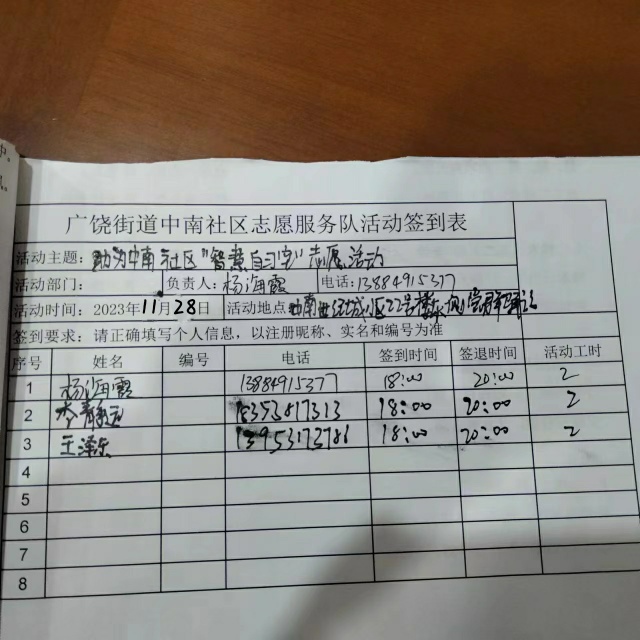 广饶街道中南社区志愿服务队活动签到表
活动主题: 中南社区"智慧自习室"志愿活动
活动部门: 负责人: 杨海霞 电话: 13884915377
活动时间: 2023年11月28日 活动地点: 中南世纪城小区22号楼
签到要求: 请正确填写个人信息，以注册昵称、实名和编号为准
序号 姓名 编号 电话 签到时间 签退时间 活动工时
1 杨海霞 13884915377 18:00 20:00 2
2 18353817313 18:00 20:00 2
3 王泽乐 13953173786 18:00 20:00 2
4
5
6
7
8